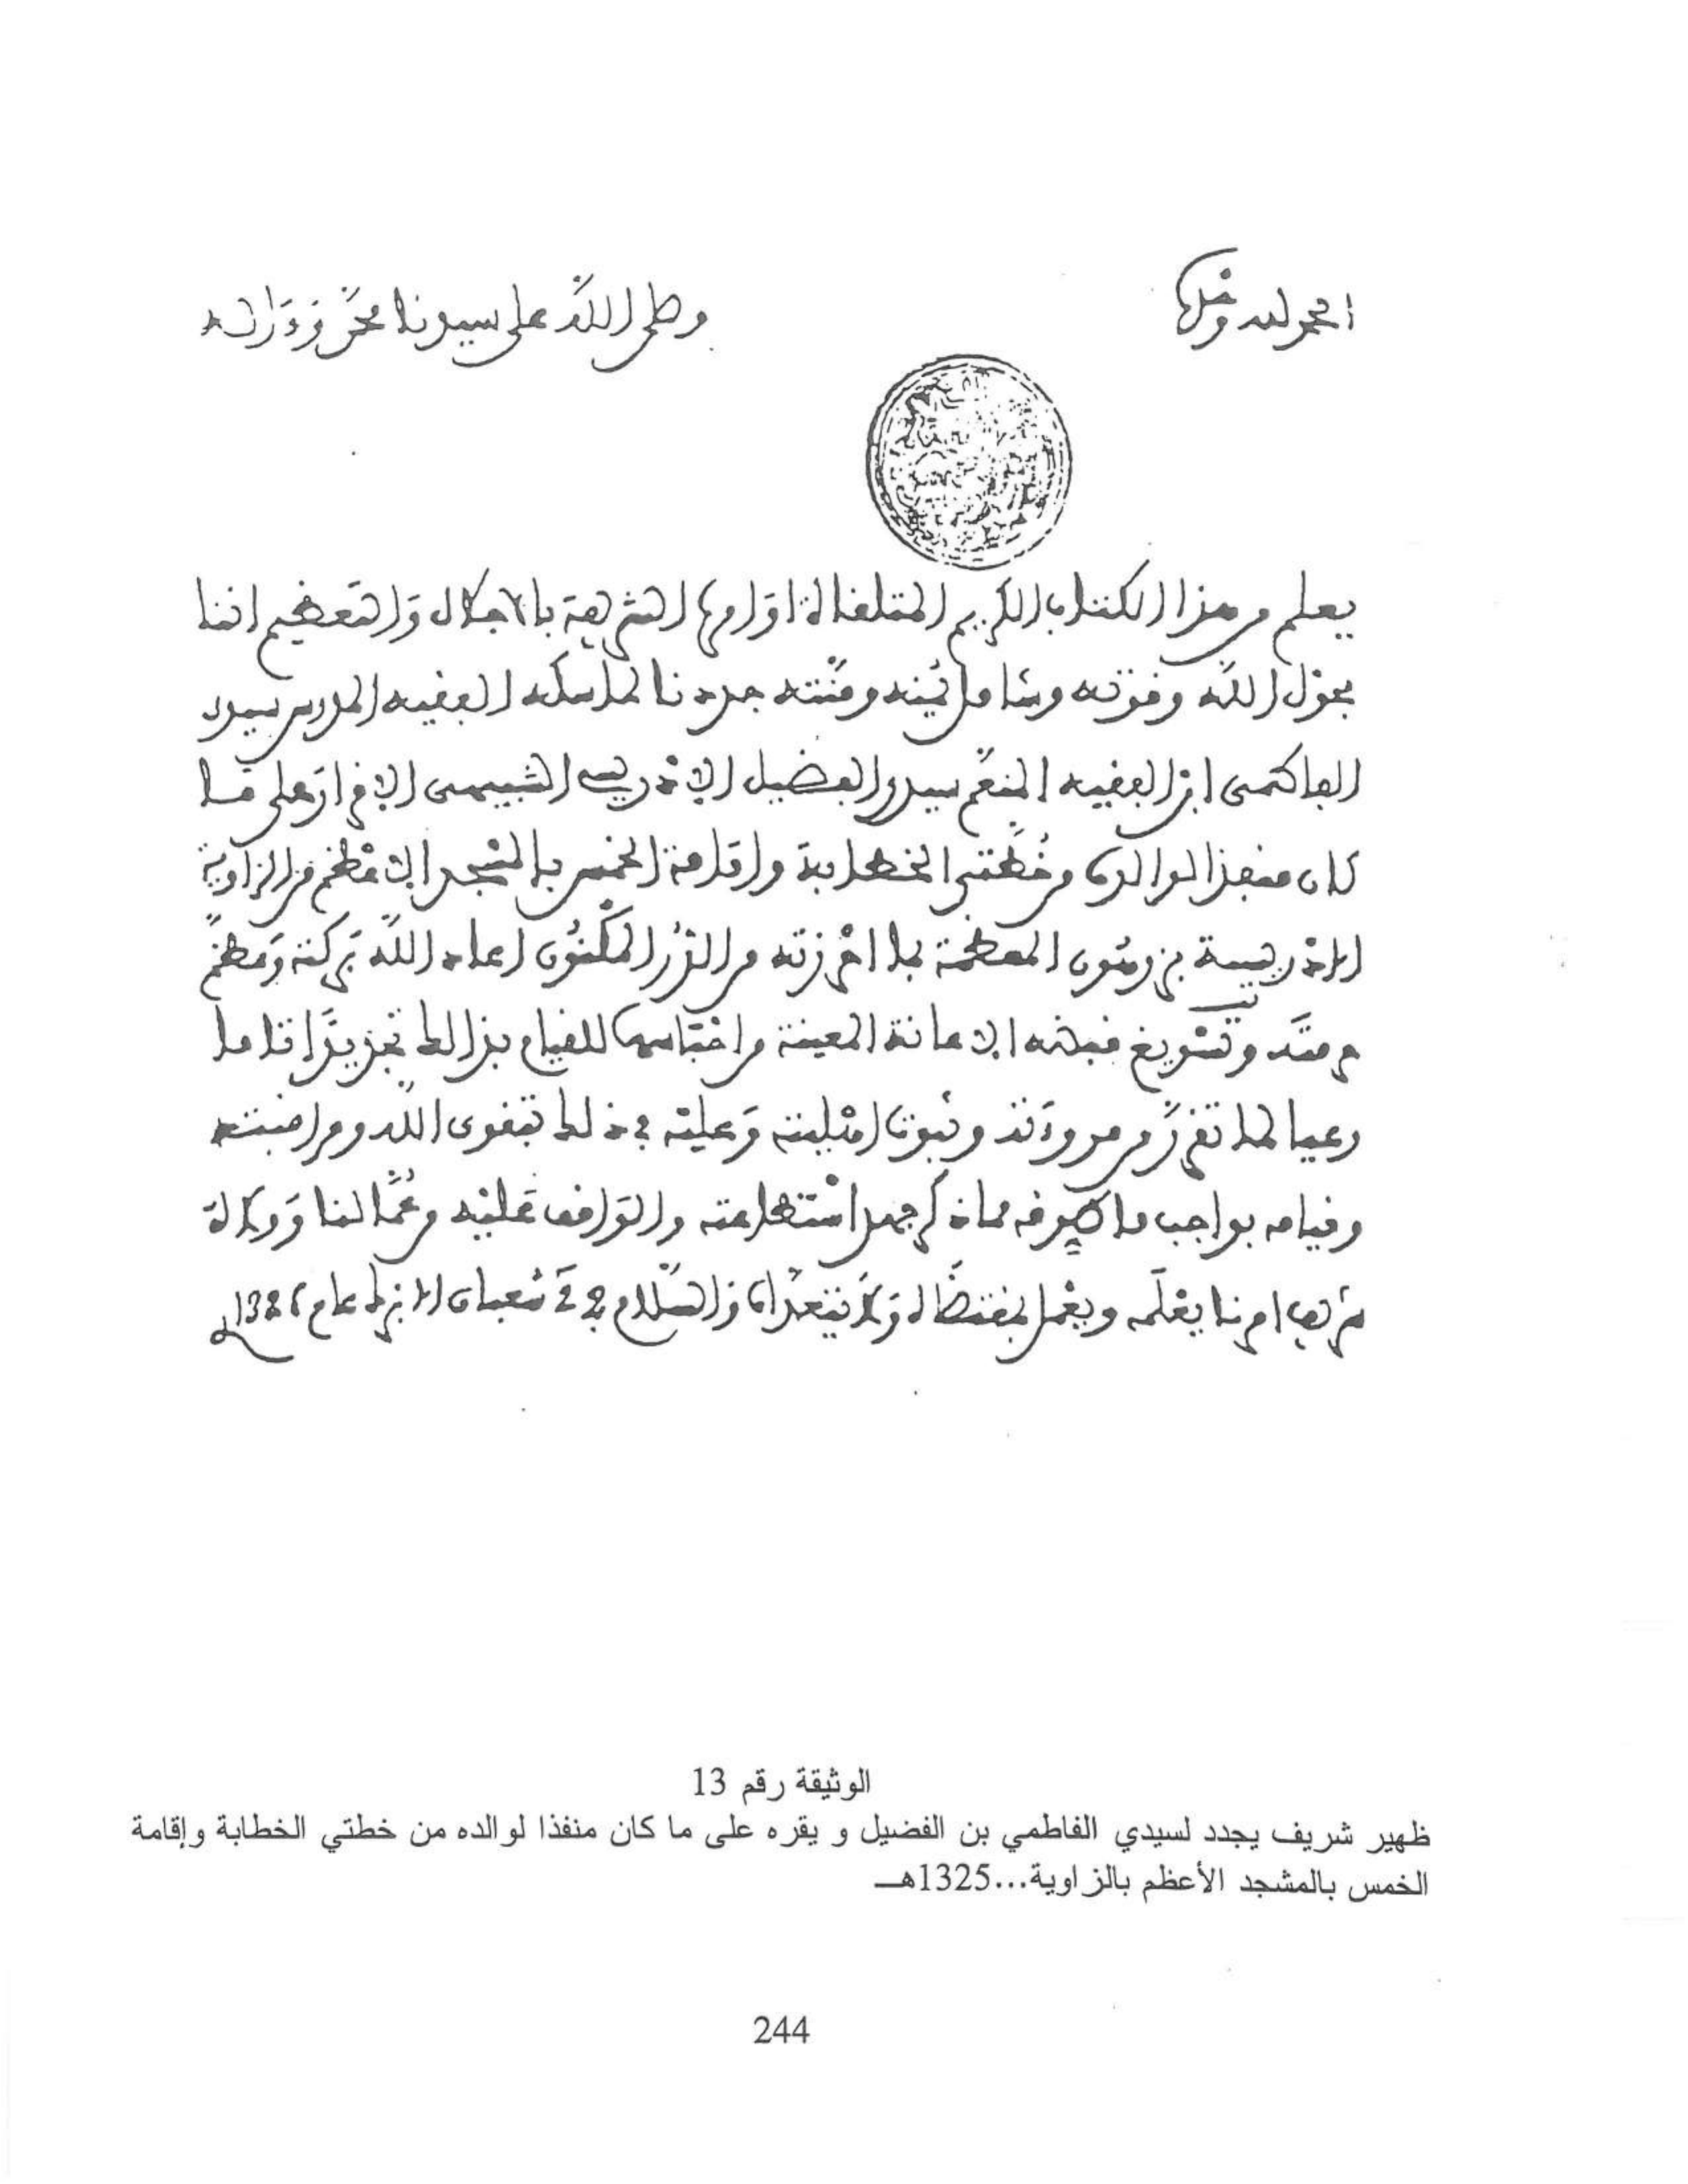 الحمد لله وحده
وصلى الله على سيدنا محمد وءاله
يعلم من هذا الكتاب الكريم المتلقاة اوامره الشريفة بالاجلال والتعظيم اننا
بحول الله وقوته وشامل يمنه ومنته جددنا لماسكه الفقيه المدرس سيدي
الفاطمى ابن الفقيه المنعم سيدي الفضيل الادريسي الشبيهى الاقرار على ما
كان منفذا لوالده من خطتى الخطابة واقامة الخمس بالمشجد الاعظم من الزاوية
الادريسية بزرهون المعظمة بما احرزته من الدر المكنون اعاد الله بركة
منه وتسويغ قبضه الاعانة المعينة من احباسها للقيام بذالك تجديدا تاما
رعيا لما تقرر من مروءته وثبوت امثليته وعليه في ذلك بتقوى الله ومراقبته
وقيامه بواجب ما مما ذكر جهد استطاعته والواقف عليه من عمالنا وولاة
شريف امرنا يعلمه ويعمل بمقتضاه ولا يتعداه والسلام في 2 شعبان الابرك عام 1325
الوثيقة رقم 13
ظهير شريف يجدد لسيدي الفاطمي بن الفضيل و يقره على ما كان منفذا لوالده من خطتي الخطابة وإقامة
الخمس بالمشجد الأعظم بالزاوية...1325هـ
244